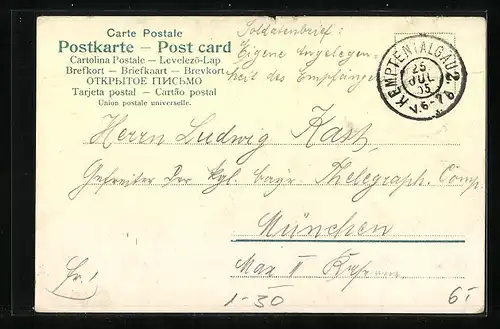 Carte Postale
Postkarte – Post card
Cartolina Postale – Levelező-Lap
Brefkort – Briefkaart – Brevkort
ОТКРЫТОЕ ПИСЬМО
Tarjeta postal – Cartão postal
Union postale universelle.
Soldatenbrief:
Eigene Angelegen-
heit des Empfängers
KEMPTEN (ALGÄU) 2
25
JUL
05
Herrn Ludwig Kast,
Gefreiter der kgl. bayr. Thelegraph. Comp.
München
Max II Kaserne
fr. 1
1-30
6.-